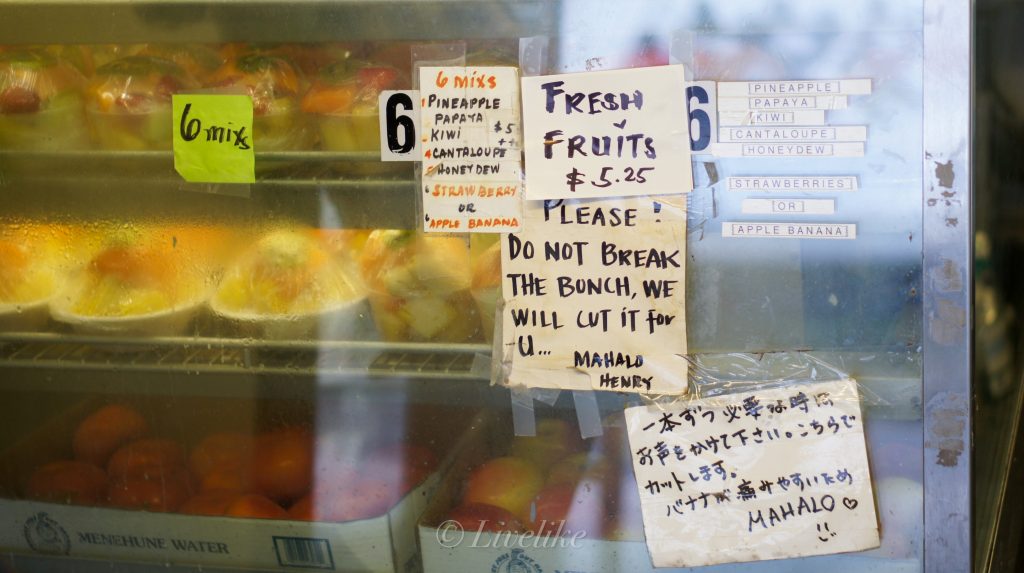 6 mixs
6
6 mixs
1 PINEAPPLE
PAPAYA
KIWI $5
4 CANTALOUPE
5 HONEYDEW
6 STRAWBERRY
OR
6 APPLE BANANA
FRESH
FRUITS
$5.25
PLEASE!
DO NOT BREAK
THE BUNCH, WE
WILL CUT IT for
U...
MAHALO
HENRY
6
[PINEAPPLE]
[PAPAYA]
[KIWI]
[CANTALOUPE]
[HONEYDEW]
[STRAWBERRIES]
[OR]
[APPLE BANANA]
一本ずつ必要な時は
お声をかけて下さい。こちらで
カットします。
バナナが痛みやすいため
MAHALO♡
MENEHUNE WATER
© Livelike